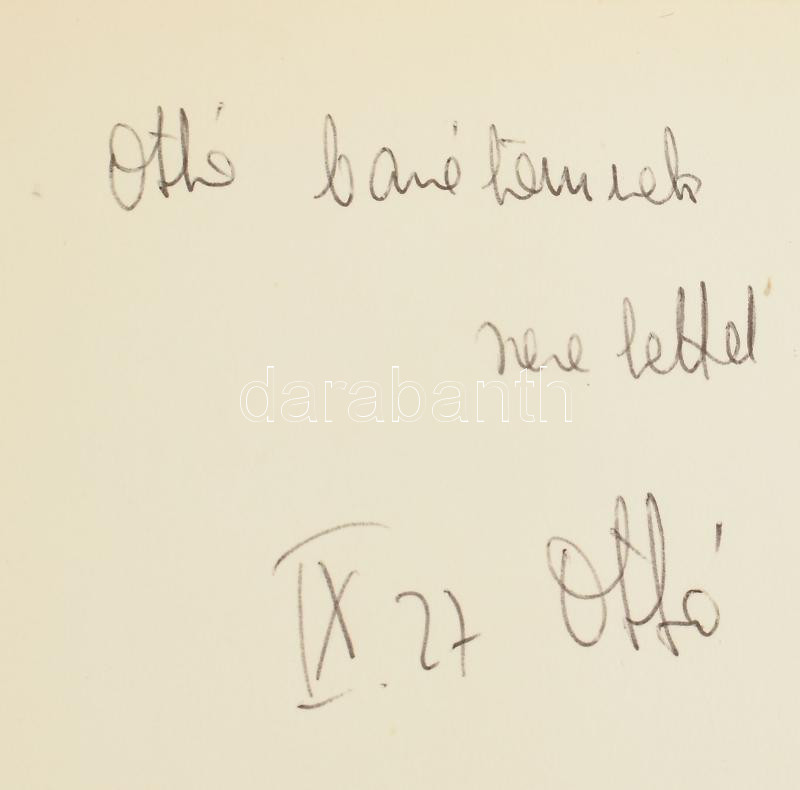 Ottó barátomnak
szeretettel
darabanth
IX. 27 Ottó